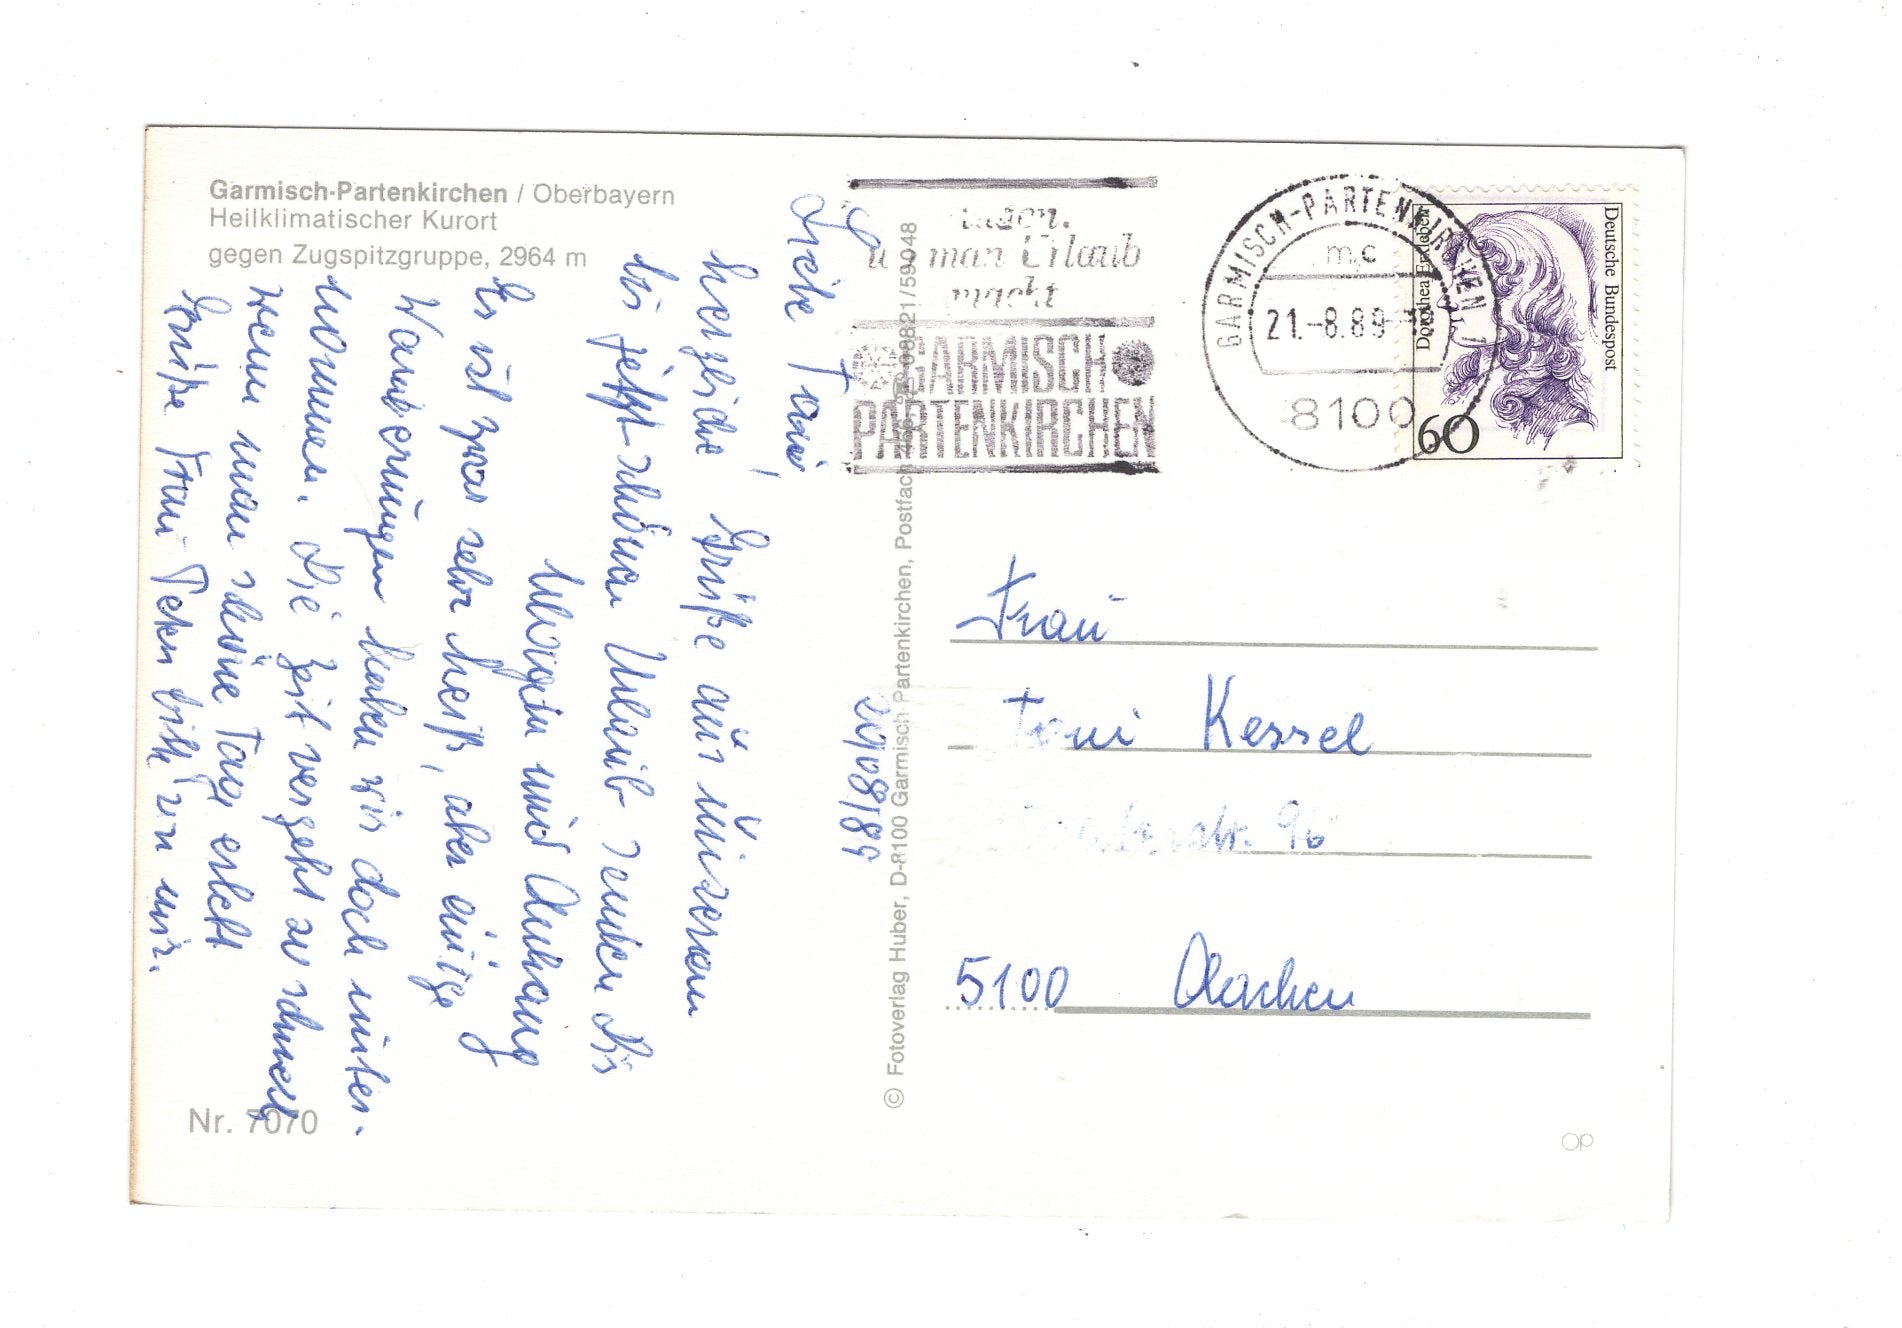 Garmisch-Partenkirchen / Oberbayern
Heilklimatischer Kurort
gegen Zugspitzgruppe, 2964 m
Liebe Toni!
herzliche Grüße aus unserem
bis jetzt schönen Urlaub senden Dir
Margen und Anhang
Es ist zwar sehr heiß, aber einige
Wanderungen haben wir doch unter-
nommen. Die Zeit vergeht zu schnell
wenn man schöne Tage erlebt
Grüße Frau bitte von mir.
20/08/89
Nr. 7070
© Fotoverlag Huber, D-8100 Garmisch-Partenkirchen, Postfach 08821/59048
man Urlaub
macht
GARMISCH
PARTENKIRCHEN
GARMISCH-PARTENKIRCHEN 1
mc
21.-8.89
8100
Deutsche Bundespost
Dorothea Erxleben
60
Frau
Toni Kessel
str. 96
5100 Aachen